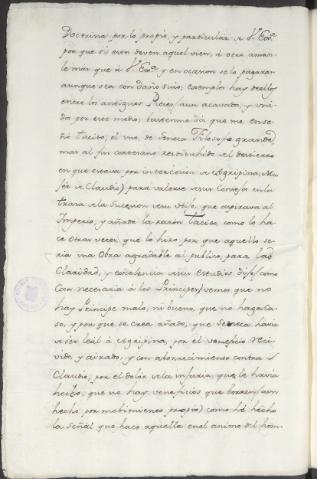 Doctrina por lo propio, y particular a V. Exª.
por que si bien deven aquel vien, à otra aman
le mas que à V. Exª y en ocasion se lo pagaran
aunque sea con daño suyo, exemplos hay dello
entre los antiguos Reyes aun acavado, y uni
do por este medio;
do Tacito, el que de Seneca Filosofo grande
mas al fin cortesano restituhido del destierro
en que estava por intercesion de Agripina, Mu
jer de Claudio) para valerse de sus Consejos en la
traza de la Sucesion de su Hijo, que aspirava al
Imperio, y añade la razon Tacito como lo ha
ce otras veces, que lo hizo, por que aquello se
ria una Obra agradable al publico, por la
Claridad, y excelencia de sus estudios
Cosa necesaria à los Principes) vemos que no
hay Principe malo, ni bueno, que no haga ca
so, y por que se crea añade, que Seneca havia
de ser leal à Agripina, por el veneficio Reci
vido, y airado, y con aborrecimiento contra
Claudio, por el dolor de la injuria, que le havia
hecho, que no hay veneficios que borren (aun
hecho por motivo propio) como hè hecho
la Señal que hace aquella en el animo del hom